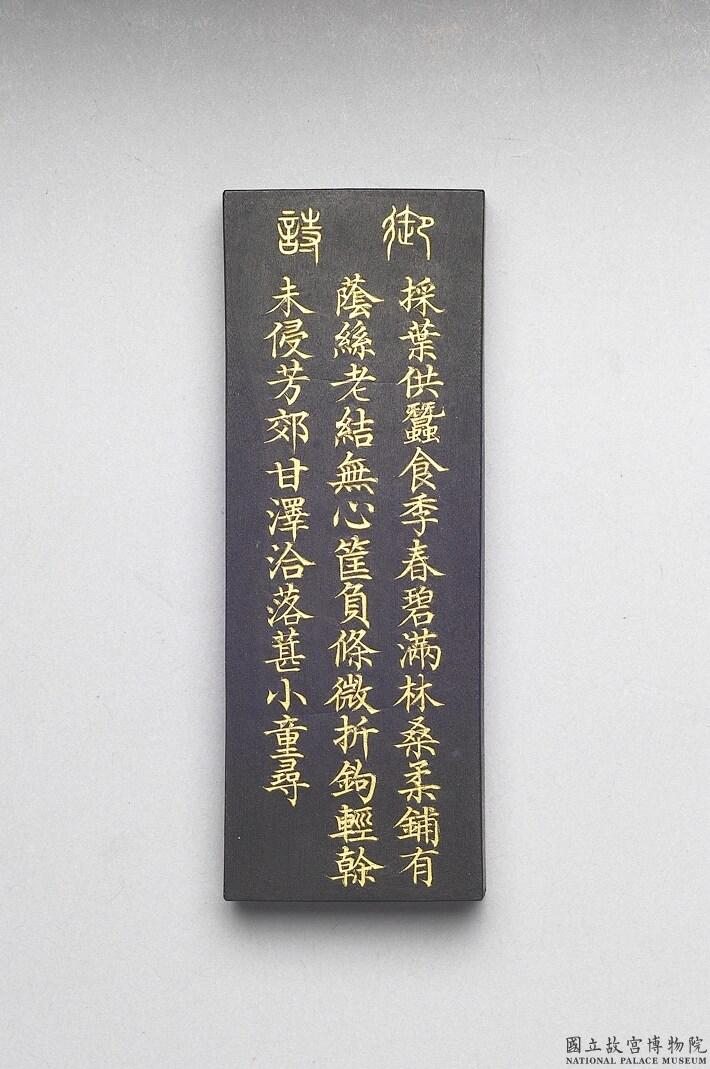 御詩
採葉供蠶食季春碧滿林桑柔鋪有
蔭絲老結無心筐負條微折鉤輕幹
未侵芳郊甘澤洽落葚小童尋
國立故宮博物院
NATIONAL PALACE MUSEUM